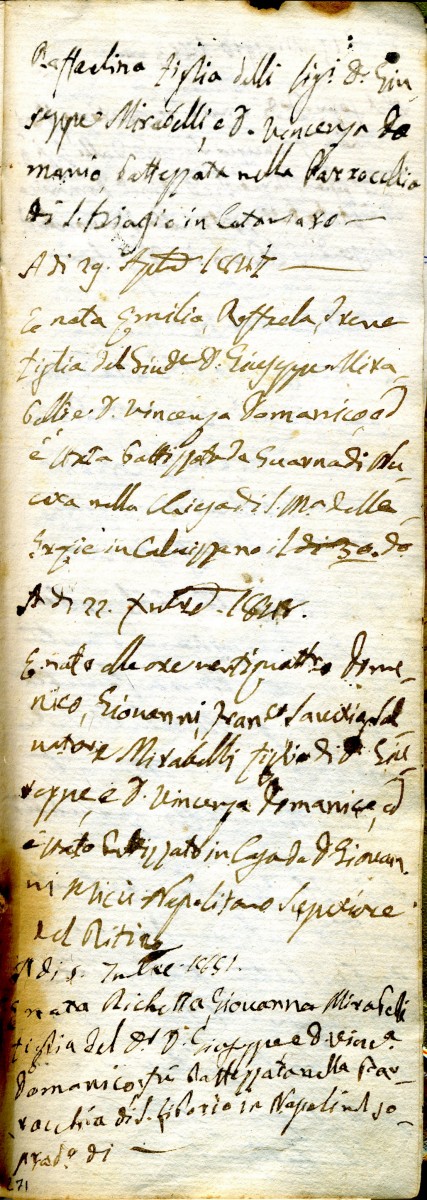 Raffaelina figlia delli Sig.i D. Giu-
seppe Mirabelli, e D. Vincenza Do
manico, battezzata nella Parrocchia
di S. Biagio in Catanzaro —
A di 29. 7mbre
E nata Emilia, Raffaela, Irene
figlia del Giude D. Giuseppe Mira-
belli e D. Vincenza Domanico, ed
è stata battezzata da
nella Chiesa di S. Ma. delle
Grazie in il di 30. do
A di 22. Xmbre
E nato alle ore ventiquattro Dome-
nico, Giovanni, Fran.co Saverio, Sal
natore Mirabelli figlio di D. Giu-
seppe, e D. Vincenza Domanico, ed
è stato battezzato in Casa da D. Giovan-
ni Napolitano Superiore
del Ritiro
A di 7mbre 1851.
E nata Richetta Giovanna Mirabelli
figlia del Dr D. Giuseppe e D. Vince.a
Domanico, fù battezzata nella Par-
rocchia di S. Liborio in Napoli il so-
prad.o di —
271